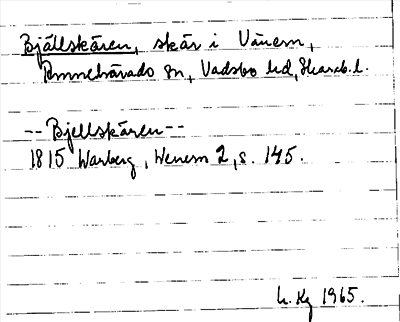 Bjällskären, skär i Vänern,
sn, Vadsbo hd, Skarab. l.
-- Bjellskären --
1815 Warberg, Wenern 2, s. 145.
1965.